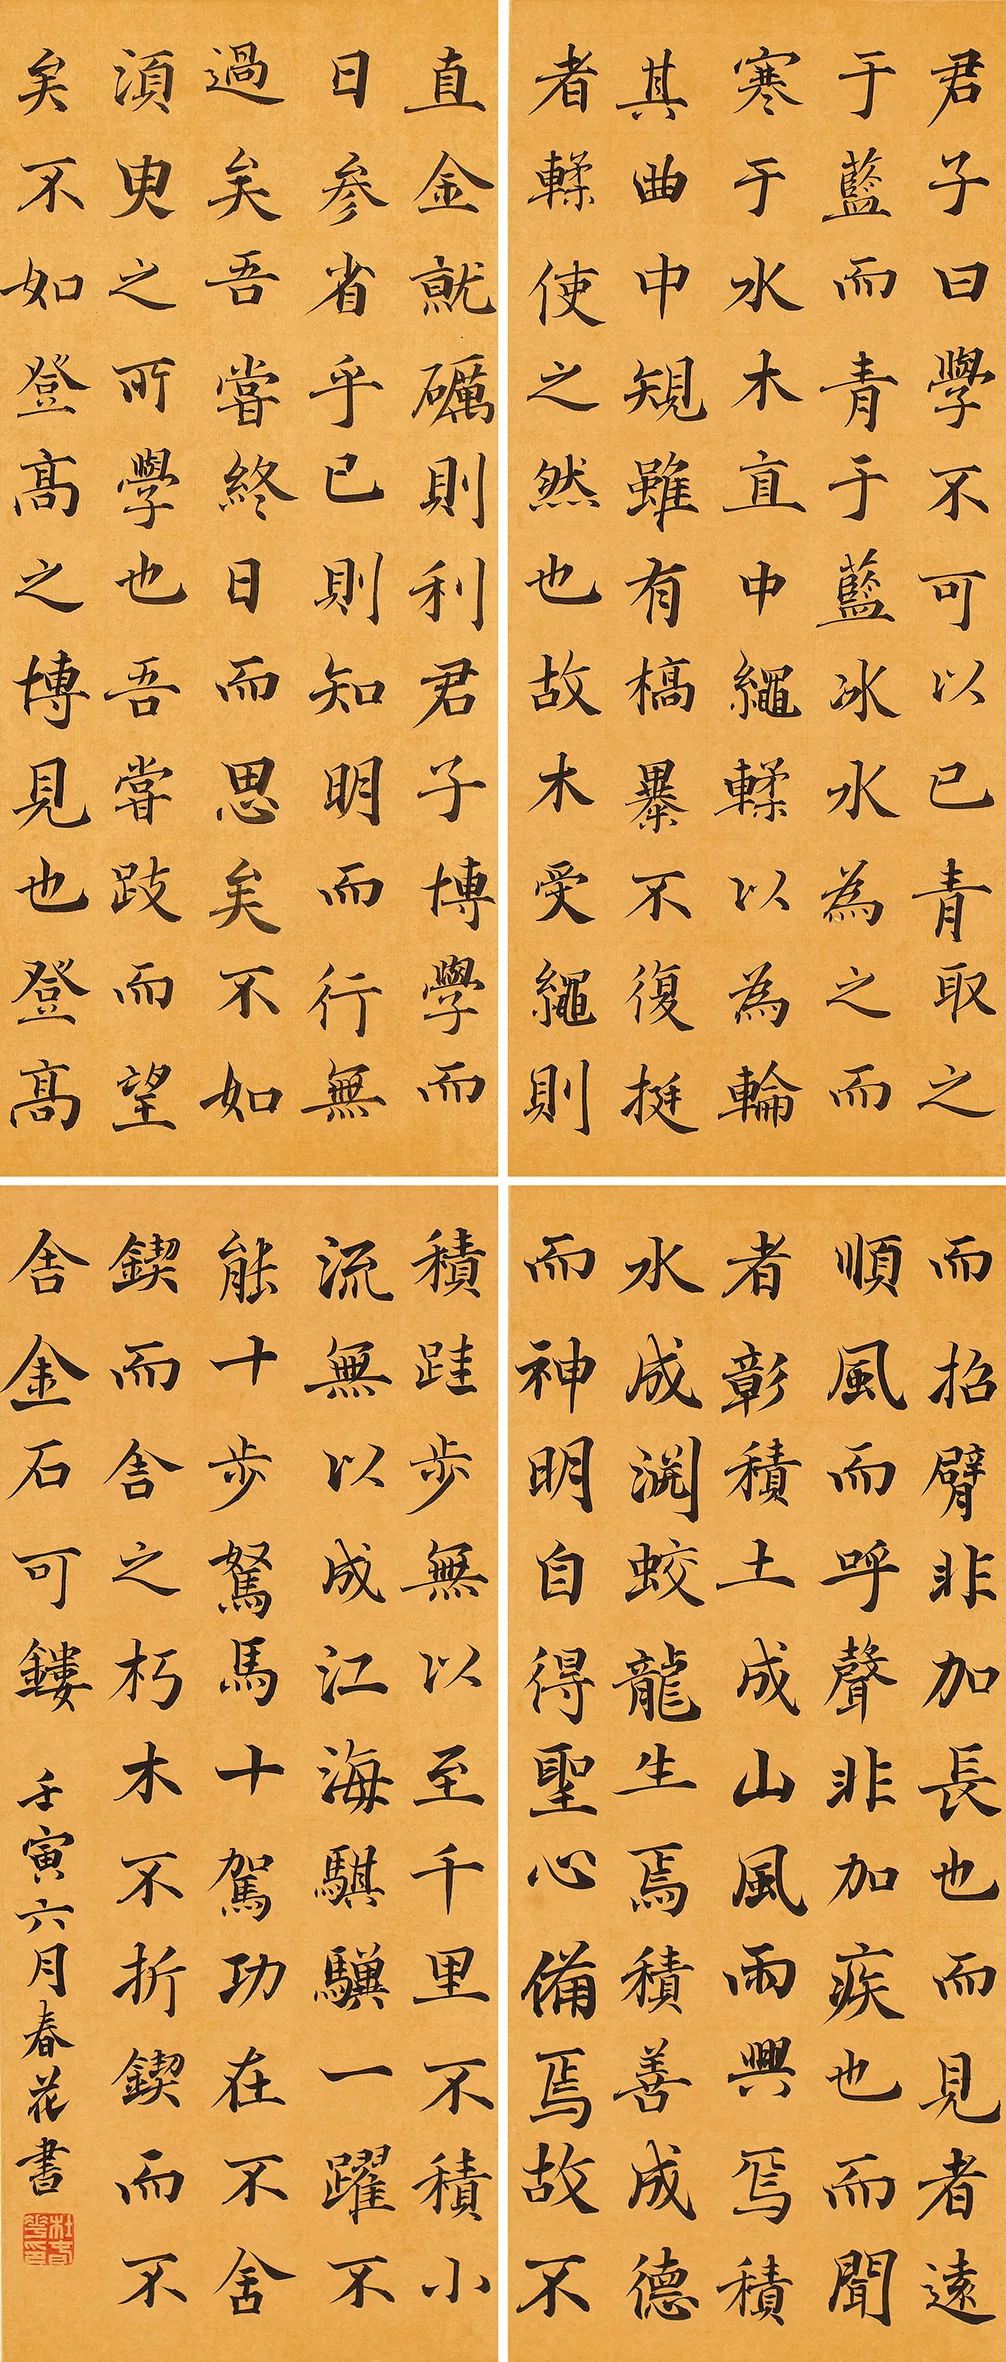 君子曰學不可以已青取之
于藍而青于藍冰水為之而
寒于水木直中繩輮以為輪
其曲中規雖有槁暴不復挺
者輮使之然也故木受繩則
直金就礪則利君子博學而
日參省乎已則知明而行無
過矣吾嘗終日而思矣不如
須臾之所學也吾嘗跂而望
矣不如登高之博見也登高
而招臂非加長也而見者遠
順風而呼聲非加疾也而聞
者彰積土成山風雨興焉積
水成淵蛟龍生焉積善成德
而神明自得聖心備焉故不
積跬步無以至千里不積小
流無以成江海騏驥一躍不
能十步駑馬十駕功在不舍
鍥而舍之朽木不折鍥而不
舍金石可鏤 壬寅六月春花書